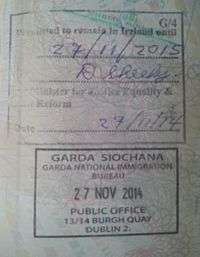 G/4
Permitted to remain in Ireland until
27/11/2015
Minister for Justice Equality &
Reform
Date 27/11/14
GARDA SIOCHANA
GARDA NATIONAL IMMIGRATION
BUREAU
27 NOV 2014
PUBLIC OFFICE
13/14 BURGH QUAY
DUBLIN 2.